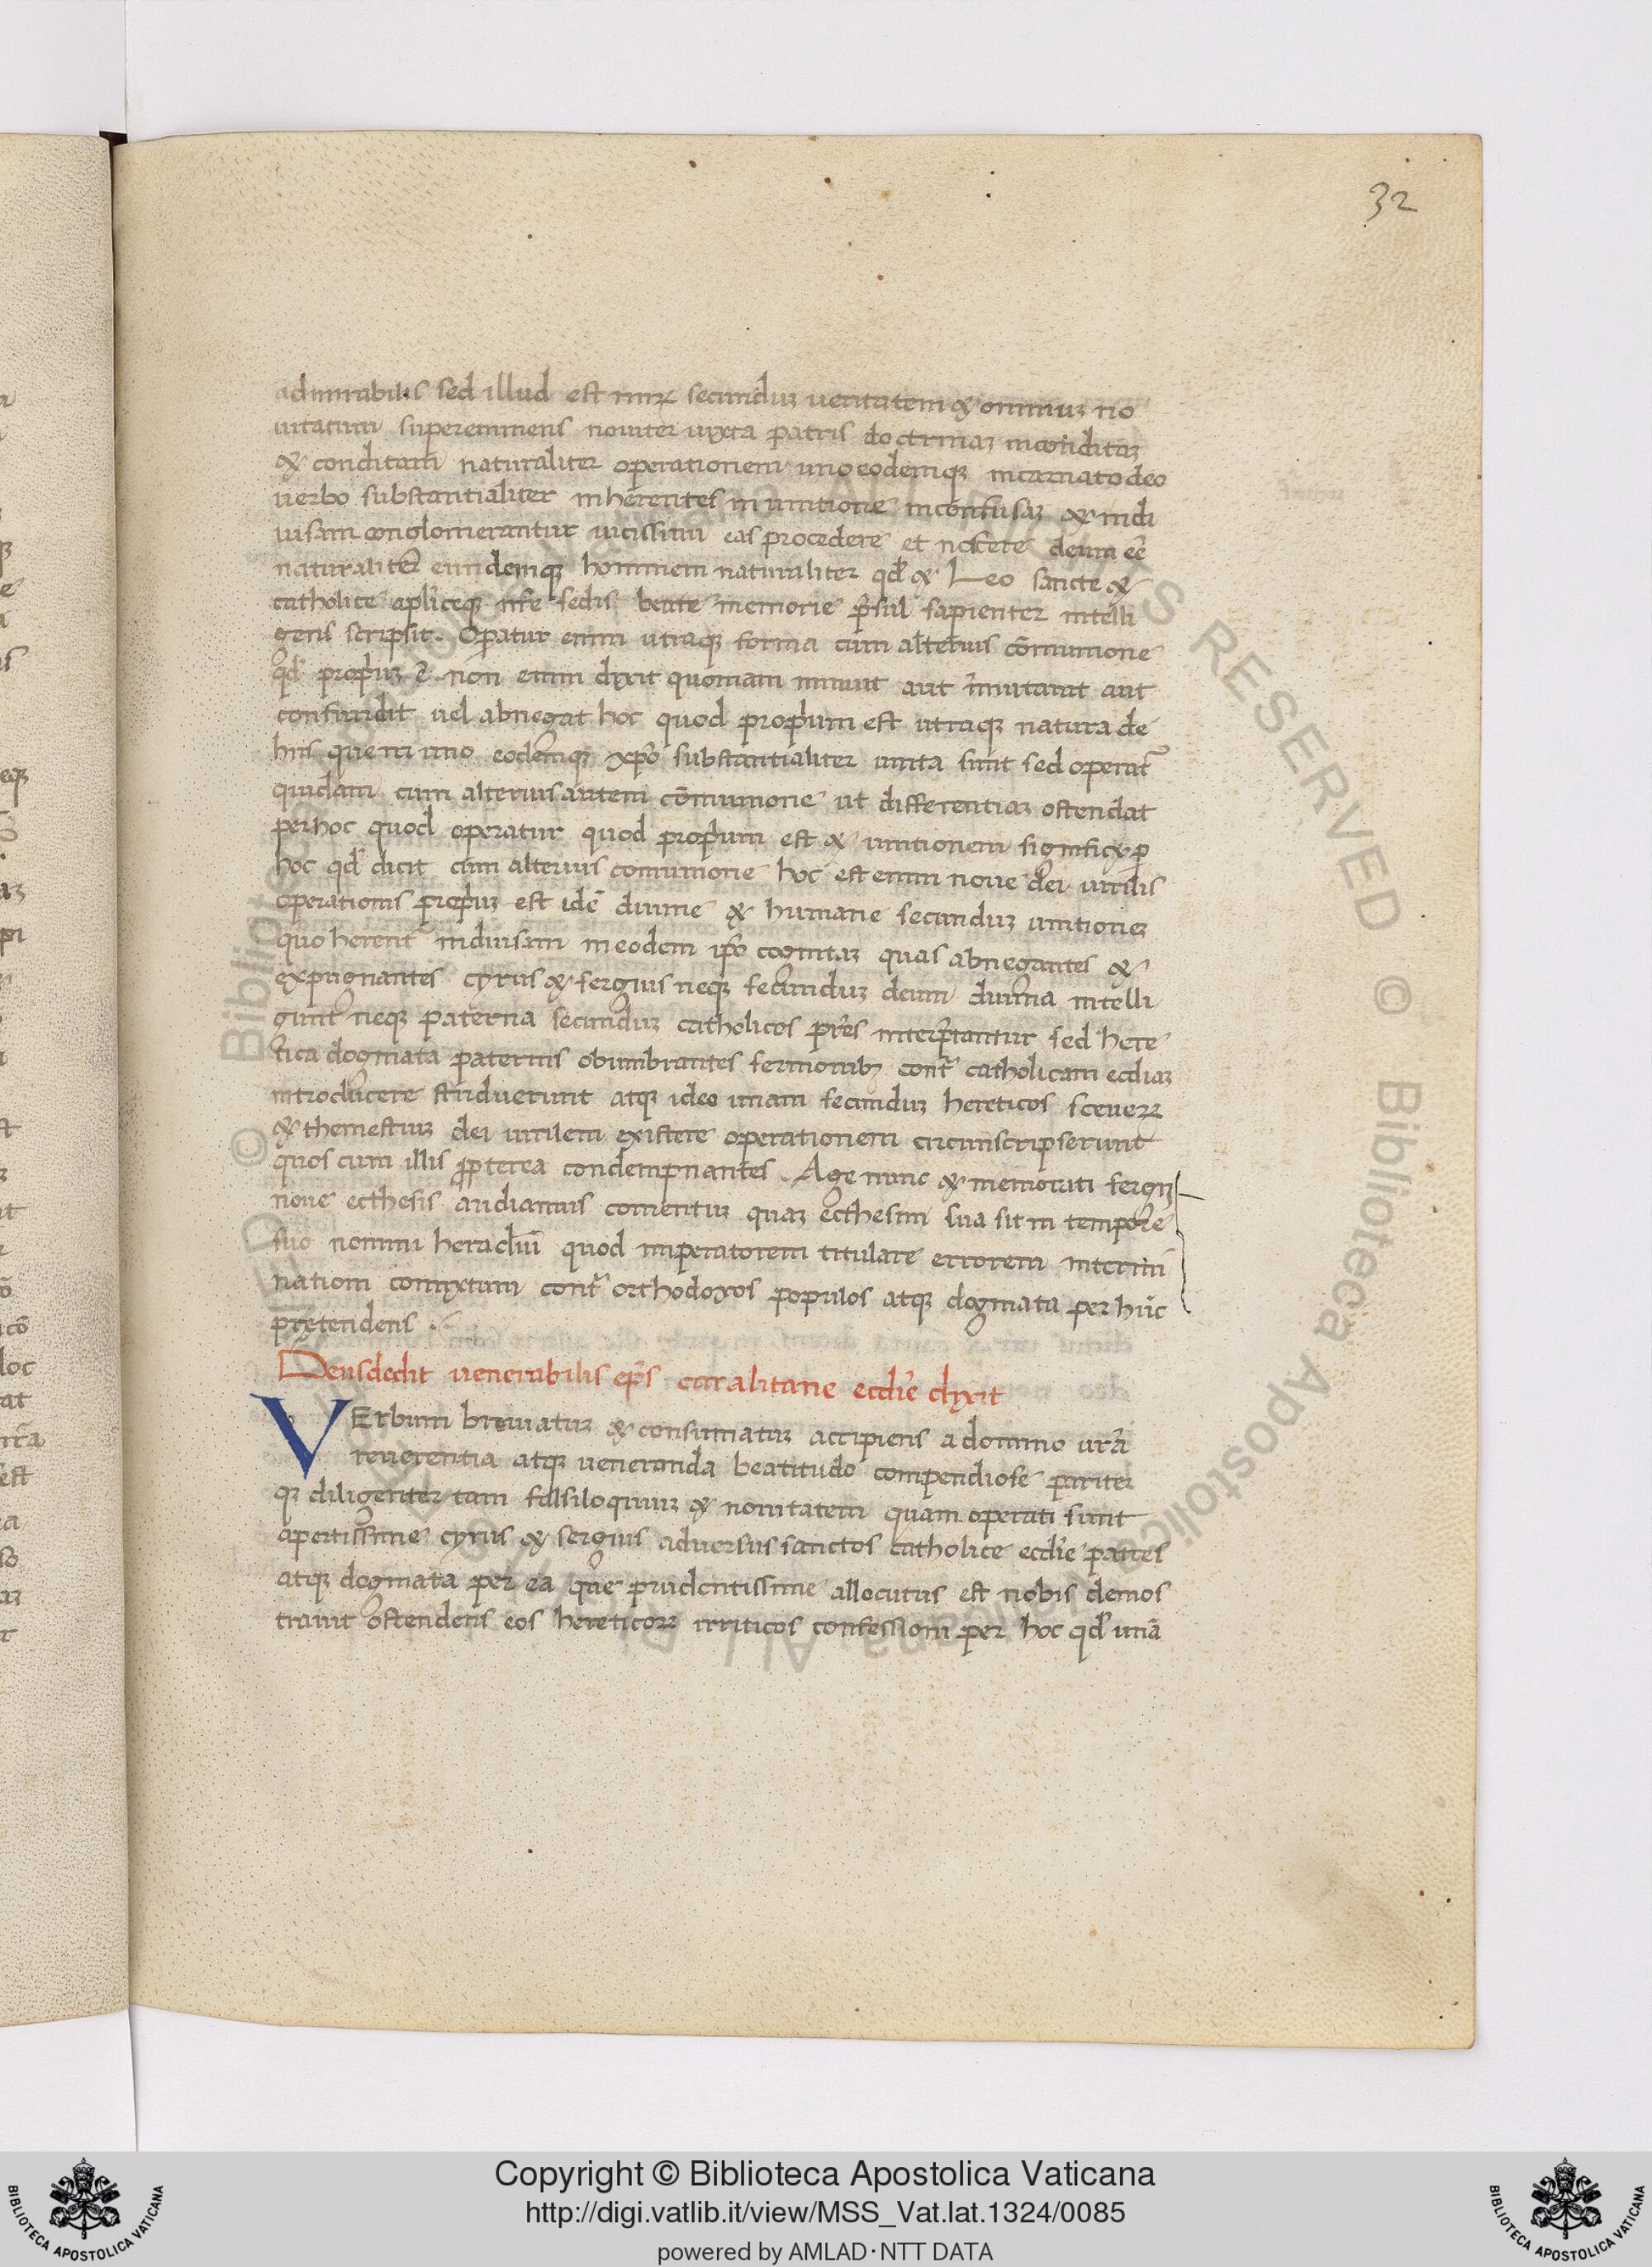 32
admirabilis sed illud est mirꝫ secunduꝫ ueritatem & omniuꝫ no
uitatum superemmens nouiter iuxta patris doctrinaꝫ inconditaꝫ
& conditam naturaliter operationem uno eodemqꝫ incarnato deo
uerbo substantialiter inherentes in unitione inconfusaꝫ & indi
uisam conglomerantur uicissim eas procedere et noscere deum eē
naturaliter eundemqꝫ hominem naturaliter qd̓ & Leo sancte &
catholice aplīceqꝫ nr̄e sedis beate memorie p̄sul sapienter intelli
gens scripsit. Opatur enim utraqꝫ forma cum alterius cōmunione
qd̓ propriuꝫ ē. non enim dixit quoniam minuit aut īmutauit aut
confundit uel abnegat hoc quod proprium est utraqꝫ natura de
hiis que in uno eodemqꝫ xp̄o substantialiter unita sunt sed operat᷑
quidam cum alterius autem cōmunione ut differentiaꝫ ostendat
per hoc quod operatur quod proprium est & unitionem significꝫ ꝑ
hoc qd̓ dicit cum alterius comunione hoc est enim noue dei uirilis
operationis propriuꝫ est idē diuine & humane secunduꝫ unitioneꝫ
quo herent indiuisam in eodem ipso cognitaꝫ quas abnegantes &
expugnantes cyrus & sergius neqꝫ secunduꝫ deum diuina intelli
gunt neqꝫ paterna secunduꝫ catholicos pr̄es interp̄tantur sed here
tica dogmata paternis obumbrantes sermonibꝫ contᷓ catholicam eccliaꝫ
introducere studuerunt atqꝫ ideo unam secunduꝫ hereticos sceueꝝ
& themestiuꝫ dei uirilem existere operationem circumscripserunt
quos cum illis ꝓpterea condempnantes. Age nunc & memorati sergiꝫ
noue ecthesis audiamus comentuꝫ quaꝫ ecthesim sua sit in tempore
suo nomini heracliū quod imperatorem titulare errorem interim
nationi comixtum contᷓ orthodoxos populos atqꝫ dogmata per hūc
pretendens.
Deusdedit uenerabilis ep̄s caralitane ecclīe dixit
VErbum breuiatuꝫ & consumatuꝫ accipiens a domino ur̄a
reuerentia atqꝫ ueneranda beatitudo compendiose pariter
qꝫ diligenter tam falsiloquiuꝫ & nouitatem quam operati sunt
apertissime cyrus & sergius aduersus sanctos catholice ecclīe patres
atqꝫ dogmata per ea que prudentissime allocutus est nobis demos
trauit ostendens eos hereticoꝝ irriticos confessioni per hoc qd̓ unā
Copyright © Biblioteca Apostolica Vaticana
http://digi.vatlib.it/view/MSS_Vat.lat.1324/0085
powered by AMLAD·NTT DATA
BIBLIOTECA APOSTOLICA VATICANA
BIBLIOTECA APOSTOLICA VATICANA